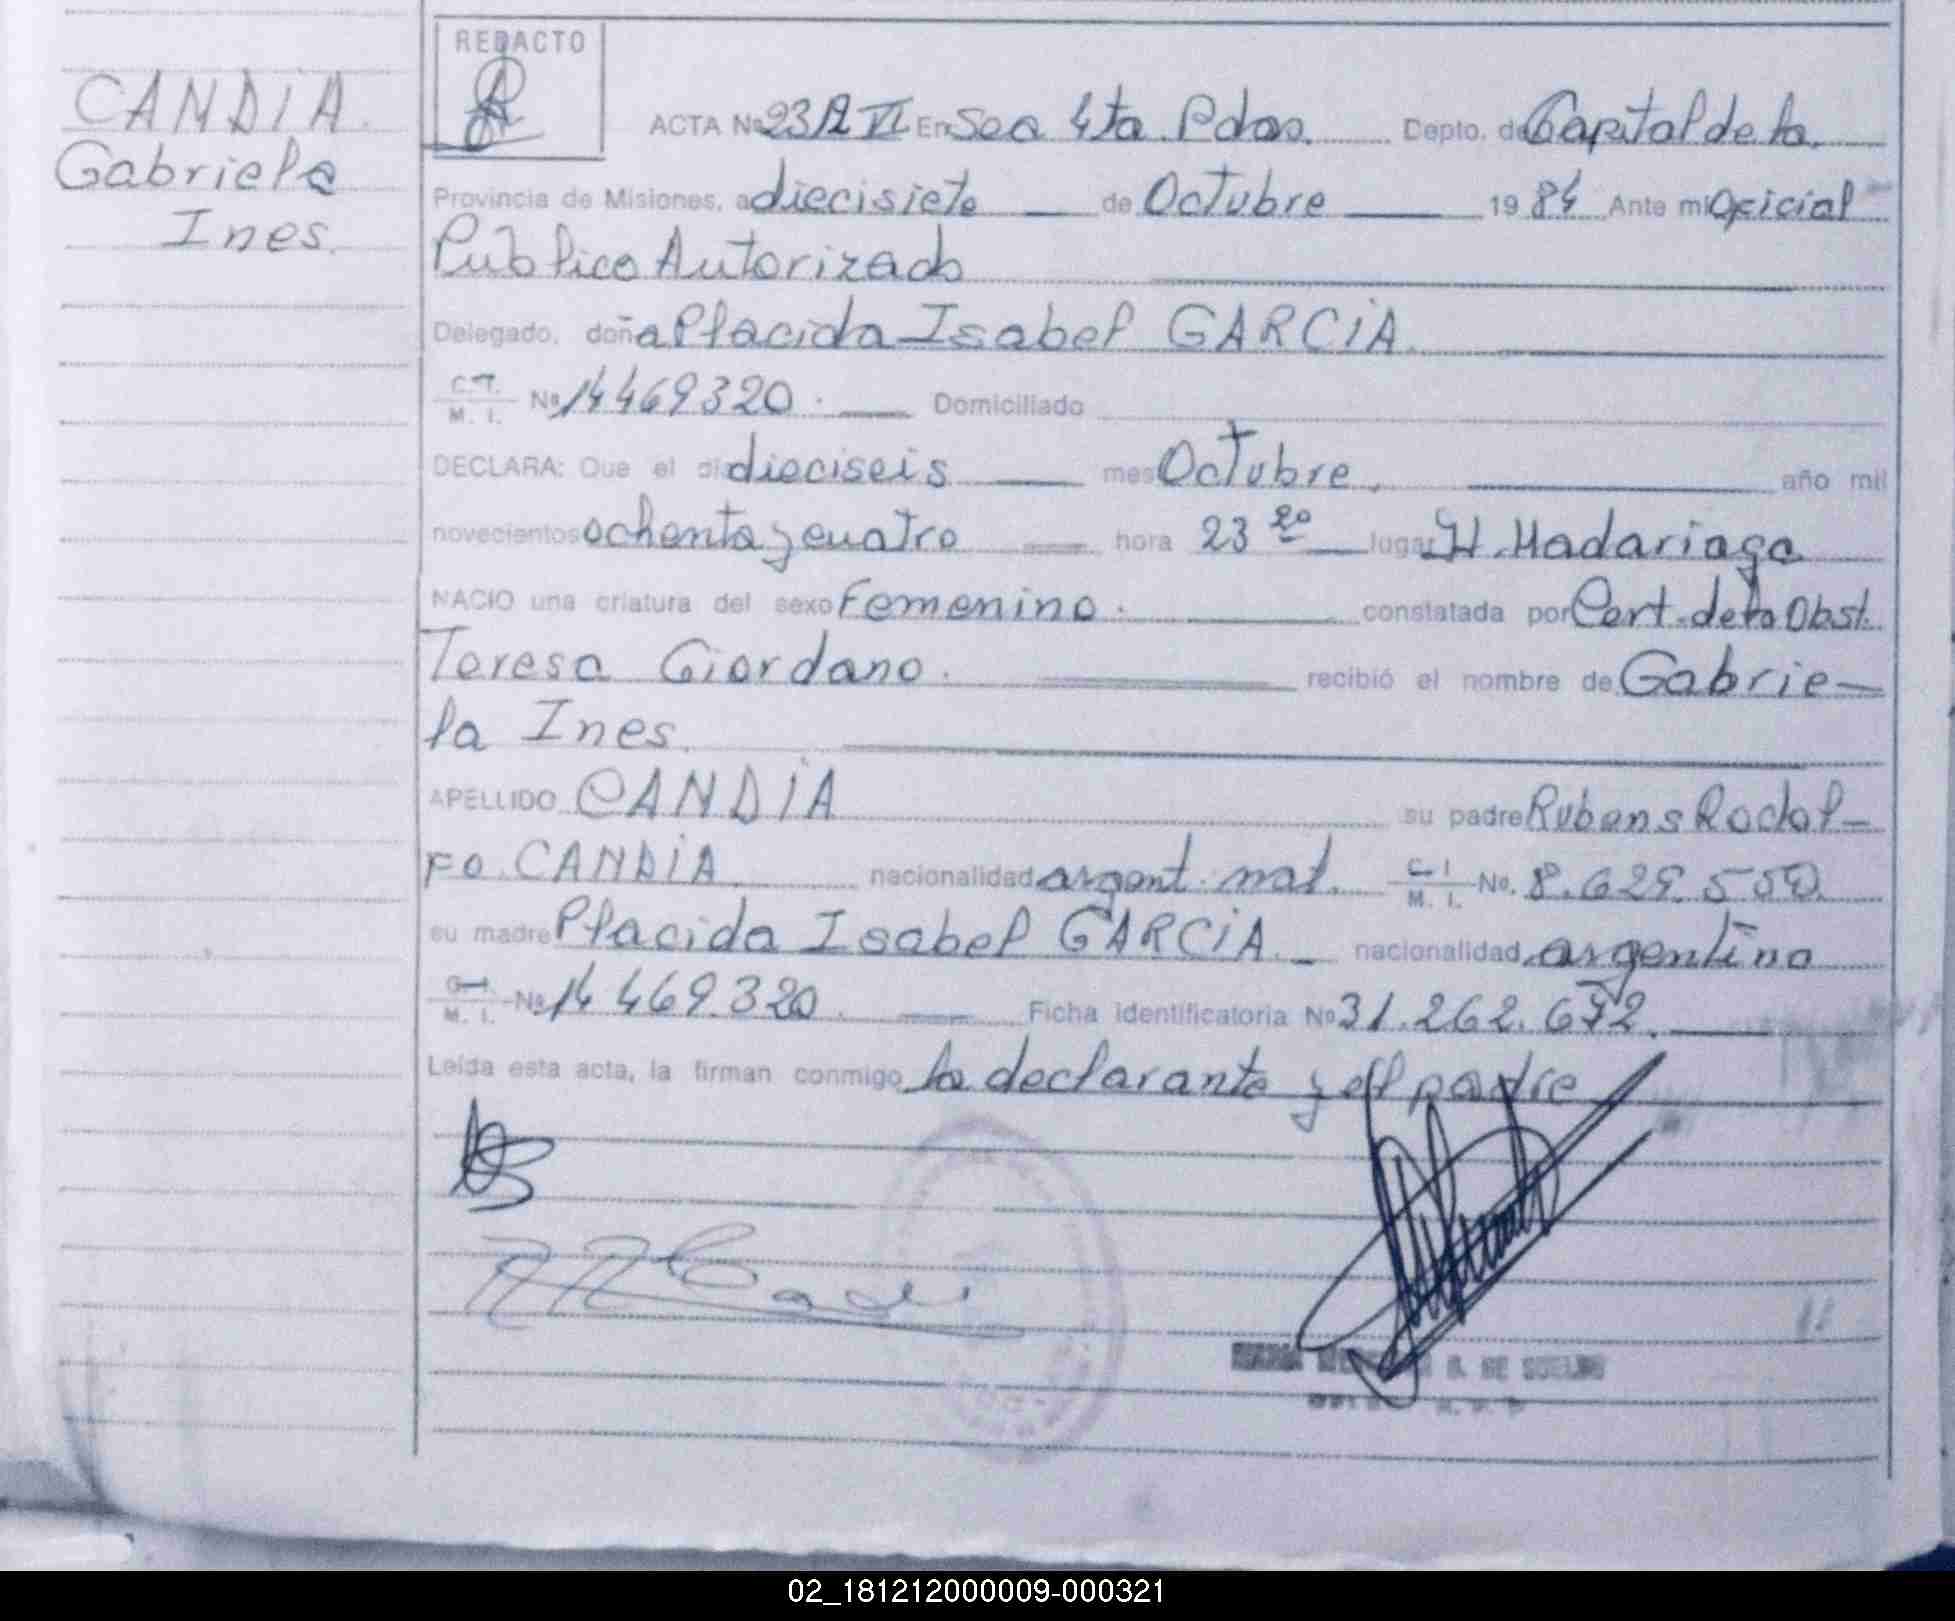 CANDIA.
Gabriela
Ines.
REDACTO
ACTA Nº 23 A VI En Sec 4ta. Pdas. Depto. de Capital de la
Provincia de Misiones, a diecisiete de Octubre 1984 Ante mi Oficial
Público Autorizado
Delegado, doña Placida Isabel GARCIA.
C.I. M. I. Nº 14469320. Domiciliado
DECLARA: Que el día dieciseis mes Octubre, año mil
novecientos ochenta y cuatro hora 23 20 lugar H. Madariaga
NACIO una criatura del sexo Femenino. constatada por Cert. de la Obst.
Teresa Giordano. recibió el nombre de Gabrie-
la Ines.
APELLIDO CANDIA su padre Rubens Rodol-
FO. CANDIA. nacionalidad argent. nat. C I M. I. No. 8.629.550.
su madre Placida Isabel GARCIA. nacionalidad argentina
C.I. M. I. Nº 14 469.320. Ficha identificatoria Nº 31.262.672.
Leída esta acta, la firman conmigo la declarante y el padre
DE
02_181212000009-000321